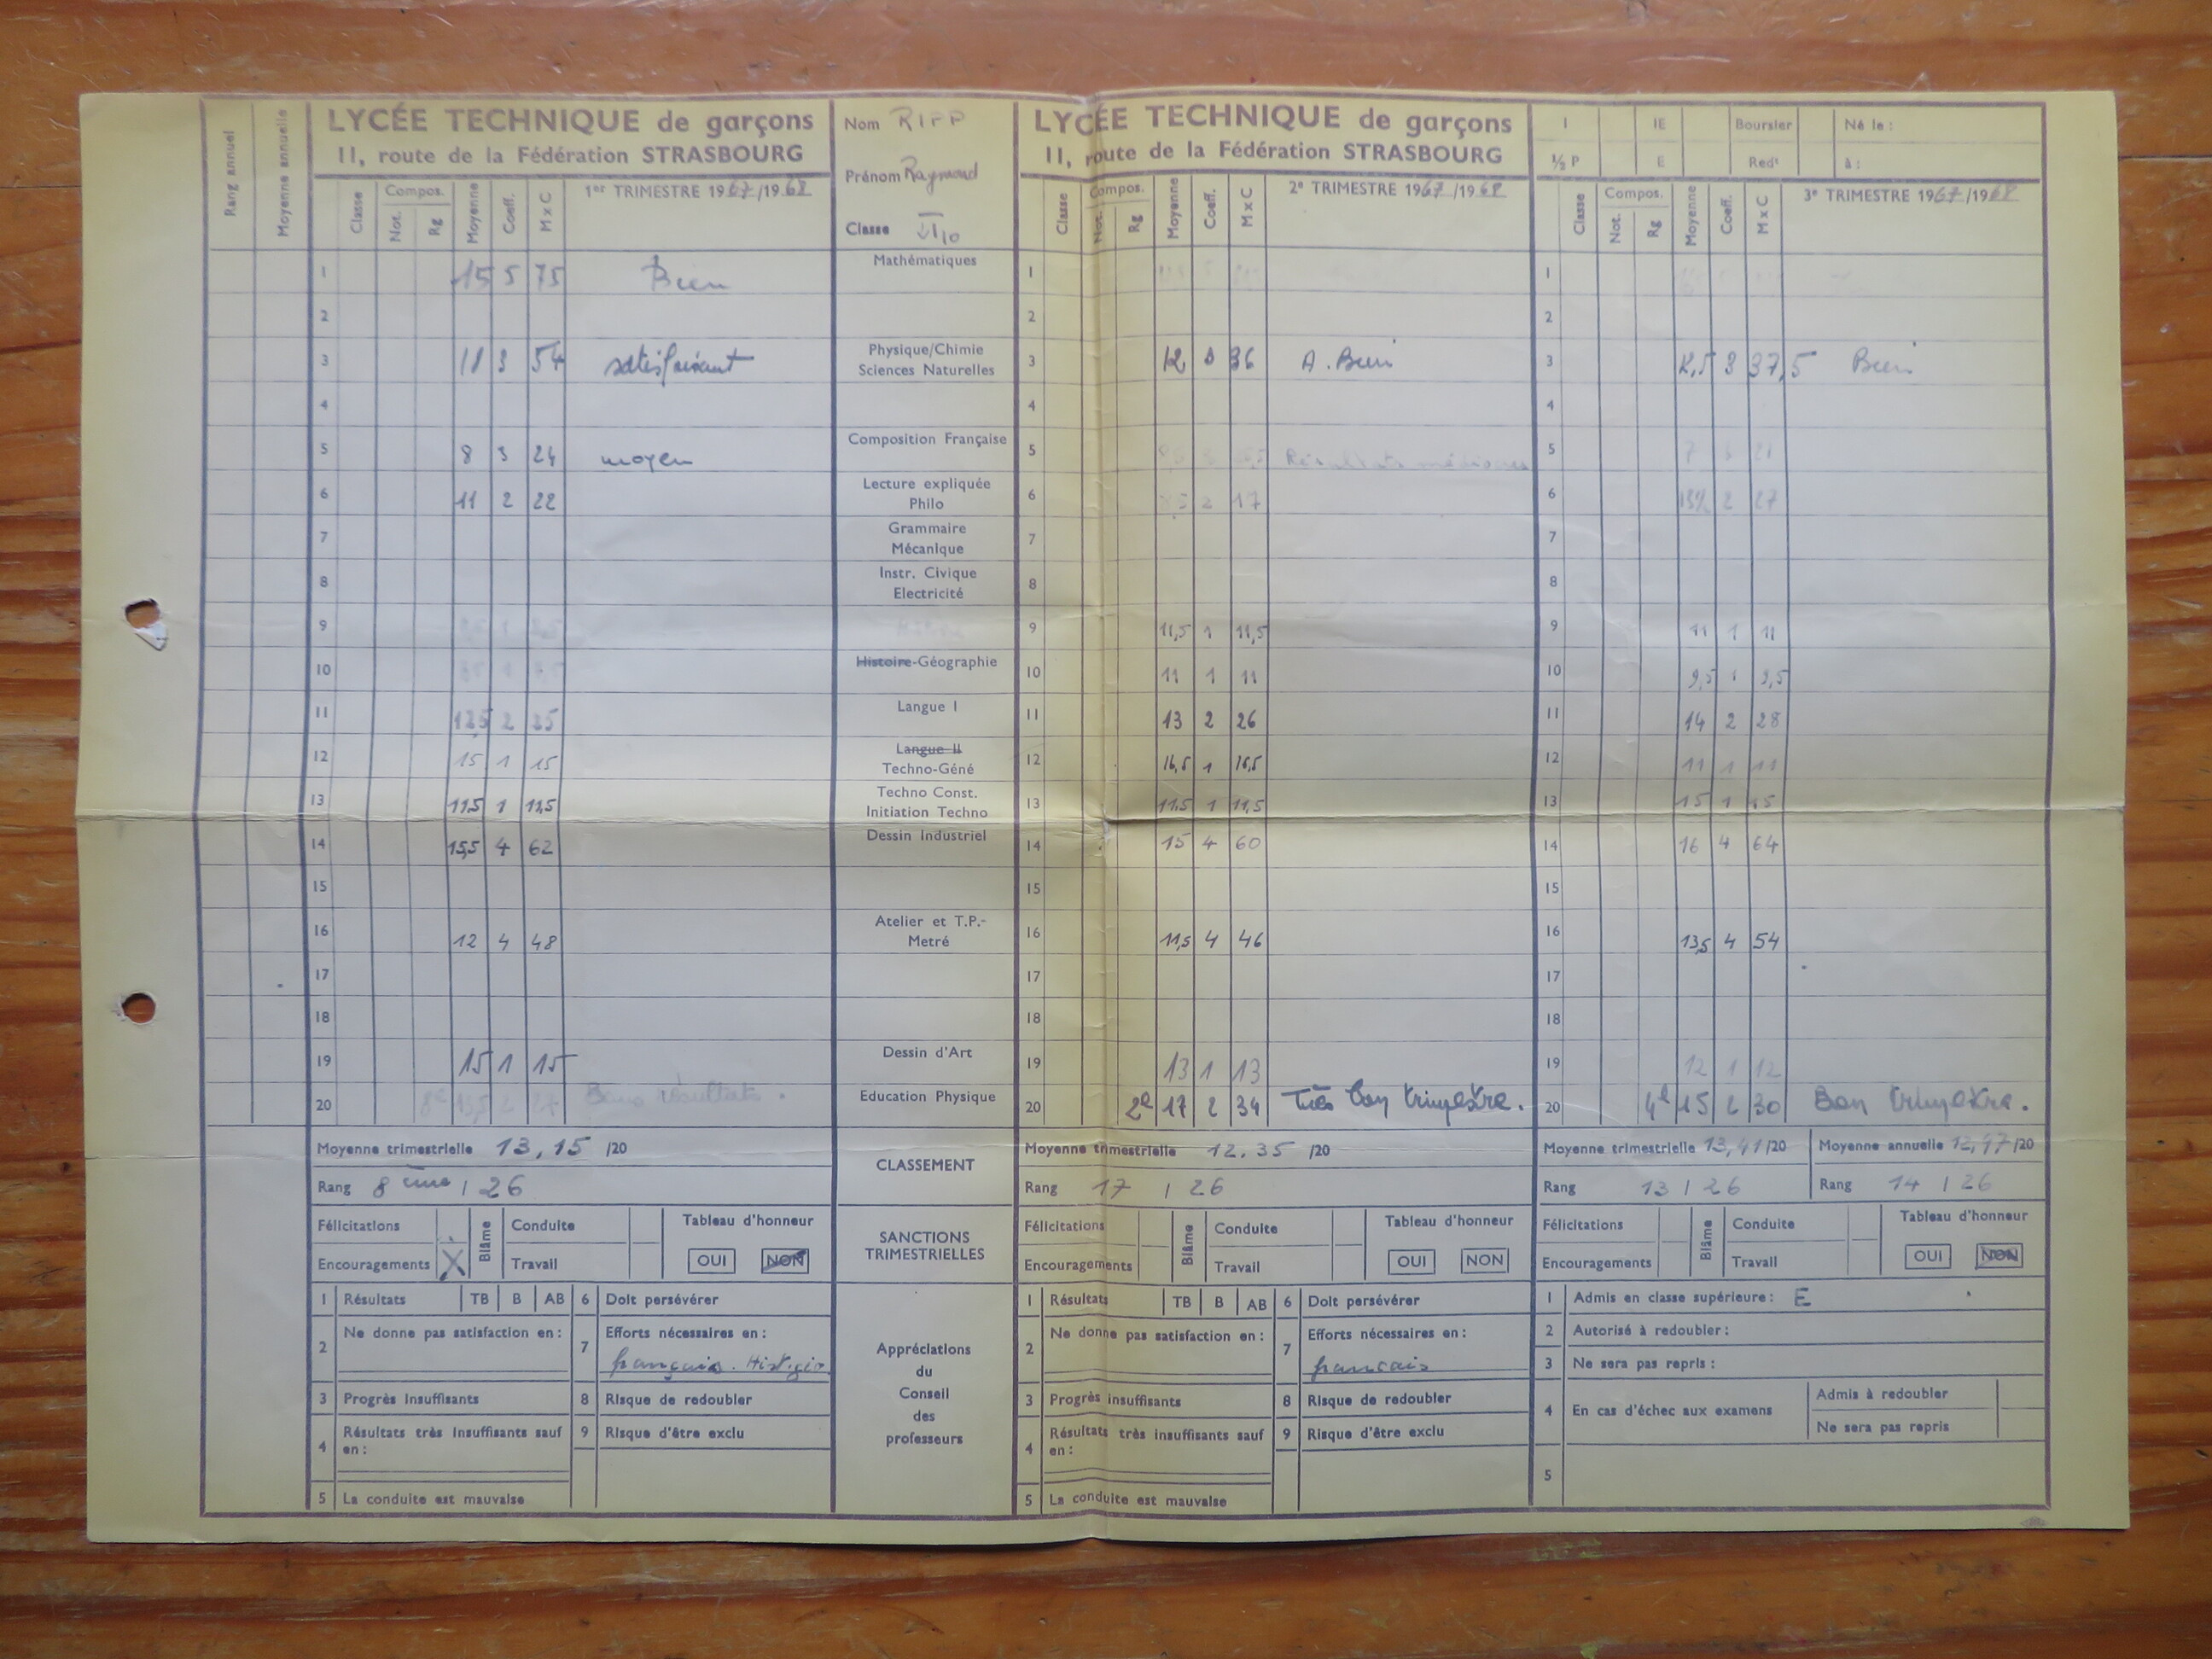 Rang annuel
Moyenne annuelle
LYCÉE TECHNIQUE de garçons
11, route de la Fédération STRASBOURG
Classe Compos. Not. Rg Moyenne Coeff. M x C 1er TRIMESTRE 1967/1968
1 15 5 75 Bien
2
3 18 3 54 satisfaisant
4
5 8 3 24 moyen
6 11 2 22
7
8
9
10
11 12,5 2 25
12 15 1 15
13 11,5 1 11,5
14 15,5 4 62
15
16 12 4 48
17
18
19 15 1 15
20 8e 13,5 2 27 Bons résultats.
Moyenne trimestrielle 13,15 /20
Rang 8ème / 26
Félicitations
Encouragements X
Blâme
Conduite
Travail
Tableau d'honneur
OUI NON
1 Résultats TB B AB
2 Ne donne pas satisfaction en :
3 Progrès Insuffisants
4 Résultats très insuffisants sauf en :
5 La conduite est mauvaise
6 Doit persévérer
7 Efforts nécessaires en :
français. Hist. géo
8 Risque de redoubler
9 Risque d'être exclu
Nom RIPP
Prénom Raymond
Classe
Mathématiques
Physique/Chimie
Sciences Naturelles
Composition Française
Lecture expliquée
Philo
Grammaire
Mécanique
Instr. Civique
Electricité
Histoire-Géographie
Langue I
Langue II
Techno-Géné
Techno Const.
Initiation Techno
Dessin Industriel
Atelier et T.P.-
Metré
Dessin d'Art
Education Physique
CLASSEMENT
SANCTIONS
TRIMESTRIELLES
Appréciations
du
Conseil
des
professeurs
LYCÉE TECHNIQUE de garçons
11, route de la Fédération STRASBOURG
Classe Compos. Not. Rg Moyenne Coeff. M x C 2e TRIMESTRE 1967/1968
1
2
3 12 3 36 A. Bien
4
5 Résultats médiocres
6 8,5 2 17
7
8
9 11,5 1 11,5
10 11 1 11
11 13 2 26
12 16,5 1 16,5
13 11,5 1 11,5
14 15 4 60
15
16 11,5 4 46
17
18
19 13 1 13
20 2e 17 2 34 Très bon trimestre.
Moyenne trimestrielle 12.35 /20
Rang 17 / 26
Félicitations
Encouragements
Blâme
Conduite
Travail
Tableau d'honneur
OUI NON
1 Résultats TB B AB
2 Ne donne pas satisfaction en :
3 Progrès insuffisants
4 Résultats très insuffisants sauf en :
5 La conduite est mauvaise
6 Doit persévérer
7 Efforts nécessaires en :
francais
8 Risque de redoubler
9 Risque d'être exclu
I IE Boursier Né le :
½ P E Redt à :
Classe Compos. Not. Rg Moyenne Coeff. M x C 3e TRIMESTRE 1967/1968
1
2
3 12,5 3 37,5 Bien
4
5 7 3 21
6 13½ 2 27
7
8
9 11 1 11
10 9,5 1 9,5
11 14 2 28
12 11 1 11
13 15 1 15
14 16 4 64
15
16 13,5 4 54
17
18
19 12 1 12
20 4e 15 2 30 Bon trimestre.
Moyenne trimestrielle 13,41/20
Moyenne annuelle 12,97/20
Rang 13 / 26
Rang 14 / 26
Félicitations
Encouragements
Blâme
Conduite
Travail
Tableau d'honneur
OUI NON
1 Admis en classe supérieure : E
2 Autorisé à redoubler :
3 Ne sera pas repris :
4 En cas d'échec aux examens
Admis à redoubler
Ne sera pas repris
5